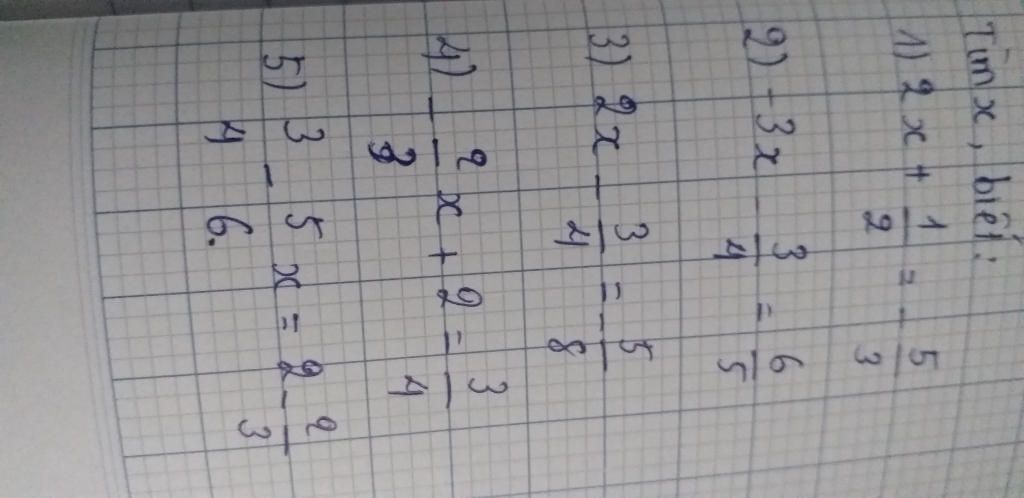 Tìm x, biết:
1) 2x + 1/2 = - 5/3
2) - 3x - 3/4 = 6/5
3) 2x - 3/4 = - 5/8
4) - 2/3 x + 2 = 3/4
5) 3/4 - 5/6 x = 2 - 2/3